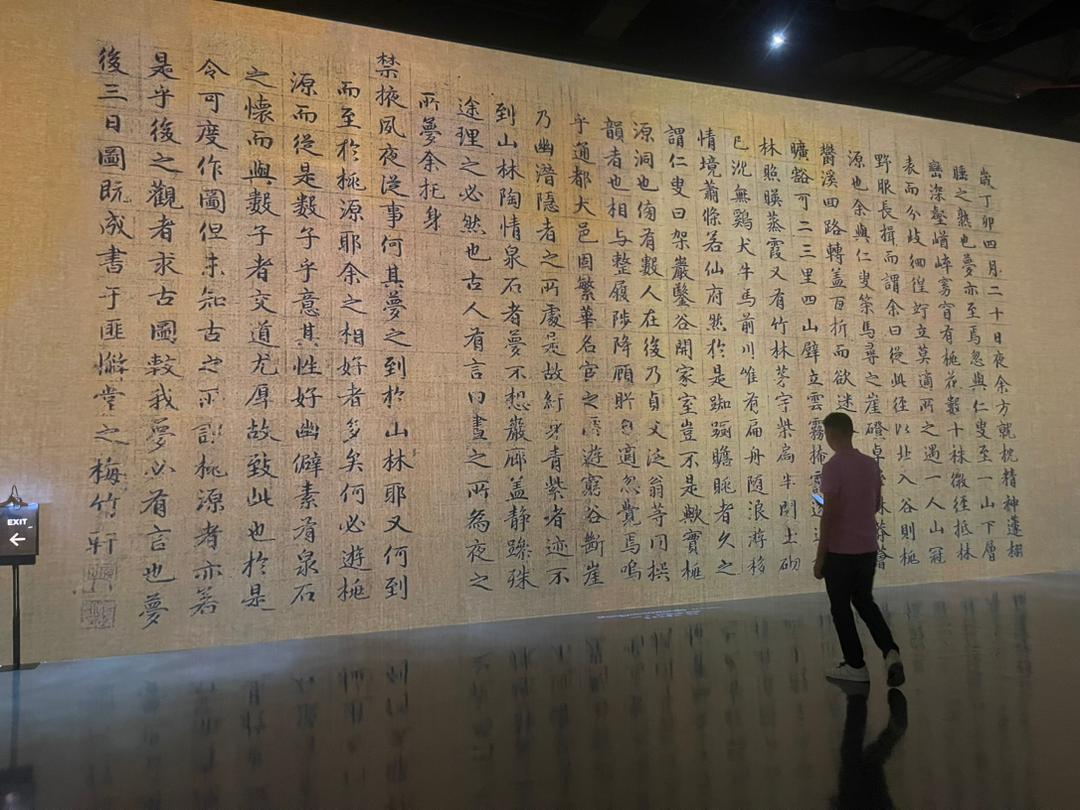 歲丁卯四月二十日夜余方就枕精神蘧栩
睡之熟也夢亦至焉忽與仁叟至一山下層
巒深壑崷崒窈窅有桃花數十株微徑抵林
表而分歧徊徨竚立莫適所之遇一人山冠
野服長揖而謂余曰從此徑以北入谷則桃
源也余與仁叟策馬尋之崖磴卓林莽薈
鬱溪回路轉蓋百折而欲迷
曠豁可二三里四山壁立雲霧掩
林照暎蒸霞又有竹林茅宇柴扃半開土砌
已沈無鷄犬牛馬前川唯有扁舟隨浪游移
情境蕭條若仙府然於是踟躕瞻眺者久之
謂仁叟曰架巖鑿谷開家室豈不是歟實桃
源洞也傍有數人在後乃貞父泛翁等同撰
韻者也相與整履陟降顧眄自適忽覺焉嗚
乎通都大邑固繁華名宦之所遊窮谷斷崖
乃幽潛隱者之所處是故紆身青紫者迹不
到山林陶情泉石者夢不想巖廊蓋静躁殊
途理之必然也古人有言曰晝之所爲夜之
所夢余托身
禁掖夙夜從事何其夢之到於山林耶又何到
而至於桃源耶余之相好者多矣何必遊桃
源而從是數子乎意其性好幽僻素有泉石
之懷而與數子者交道尤厚故致此也於是
令可度作圖但未知古之所謂桃源者亦若
是乎後之觀者求古圖較我夢必有言也夢
後三日圖旣成書于匪懈堂之梅竹軒
EXIT